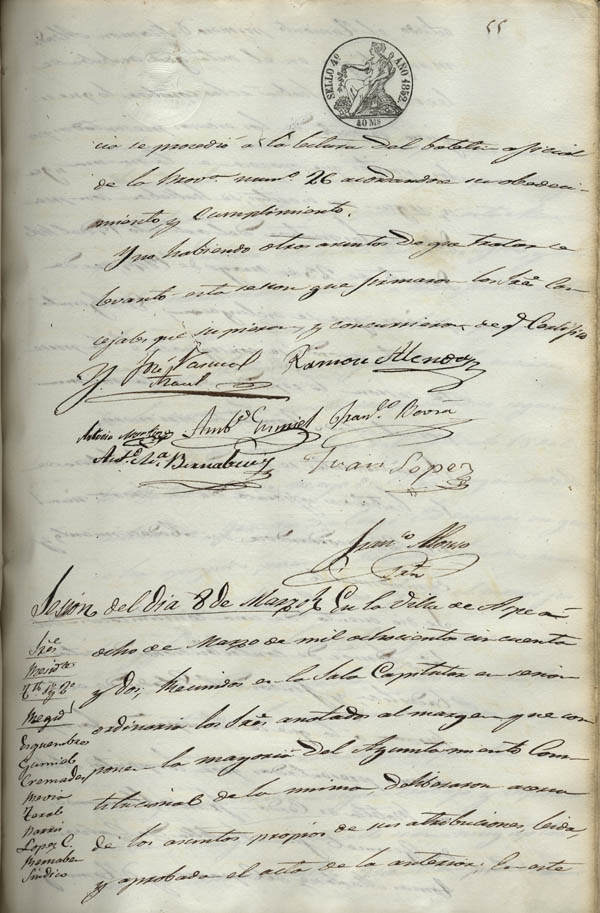 55
SELLO 4º AÑO 1852
40 Ms
cio se procedió a la lectura del boletin oficial
de la Provª numº 26 acordandose su obedeci
miento y Cumplimiento.
Y no habiendo otros asuntos de que tratar se
levantó esta sesion que firmaron los Sres Con
cejales que supieron y concurrieron de q Certifico
José Pascual
Ramon Alenda
Antonio
Ambº Gumiel
Franco Boviá
Antº Mª Bernabeu
Juan Lopez
Franco Alonso
Srio
Sesion del dia 8 de Marzo En la Villa de Aspe á
ocho de Marzo de mil ochocientos cincuenta
y dos; Reunidos en la Sala Capitular en sesion
ordinaria los Sres anotados al margen que com
ponen la mayoria del Ayuntamiento Cons
titucional de la misma, deliberaron acerca
de los asuntos propios de sus atribuciones, leida,
y aprobada el acta de la anterior; en este
Sres
Regid
Esquembre
Gumiel
Cremades
Lopez C.
Bernabeu
Sindico